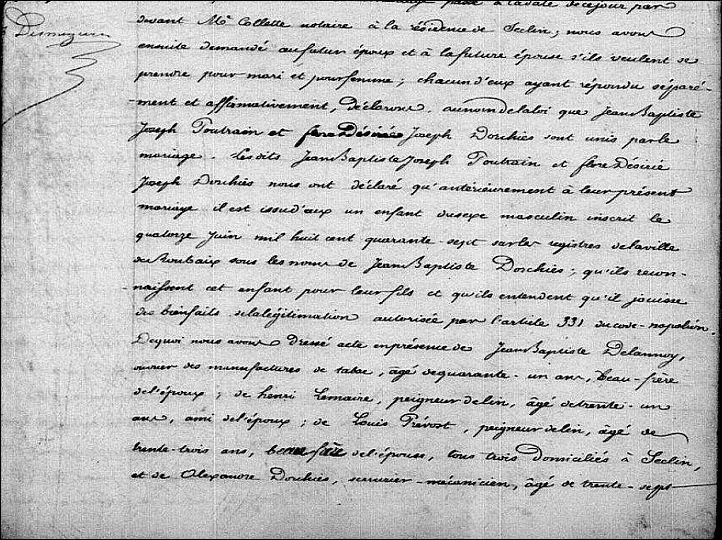 mariage passé à la date de ce jour par
devant Me Collette notaire à la résidence de Seclin; nous avons
ensuite demandé au futur époux et à la future épouse s'ils veulent se
prendre pour mari et pour femme; chacun d'eux ayant répondu séparé-
ment et affirmativement, déclarons au nom de la loi que Jean Baptiste
Joseph Poutrain et flore Désirée Joseph Dorchies sont unis par le
mariage. Les dits Jean Baptiste Joseph Poutrain et flore Désirée
Joseph Dorchies nous ont déclaré qu'antérieurement à leur présent
mariage il est issu d'eux un enfant du sexe masculin inscrit le
quatorze Juin mil huit cent quarante-sept sur les registres de la ville
de Roubaix sous les noms de Jean Baptiste Dorchies; qu'ils recon-
naissent cet enfant pour leur fils et qu'ils entendent qu'il jouisse
des bienfaits de la légitimation autorisée par l'article 331 du code-napoléon.
De quoi nous avons dressé acte en présence de Jean Baptiste Delannoy,
ouvrier des manufactures de tabac, âgé de quarante-un ans, beau-frère
de l'époux; de henri Lemaire, peigneur de lin, âgé de trente-un
ans, ami de l'époux; de Louis Prévost, peigneur de lin, âgé de
trente-trois ans, beau frère de l'épouse, tous trois domiciliés à Seclin,
et de Alexandre Dorchies, serrurier-mécanicien, âgé de trente-sept